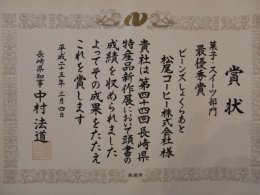 賞状
菓子・スイーツ部門
最優秀賞
ビーンズしょくらあと
松尾コーヒー株式会社様
貴社は第四十四回長崎県
特産品新作展において頭書の
成績を収められました
よってその成果をたたえ
これを賞します
平成二十五年三月四日
長崎県知事 中村法道